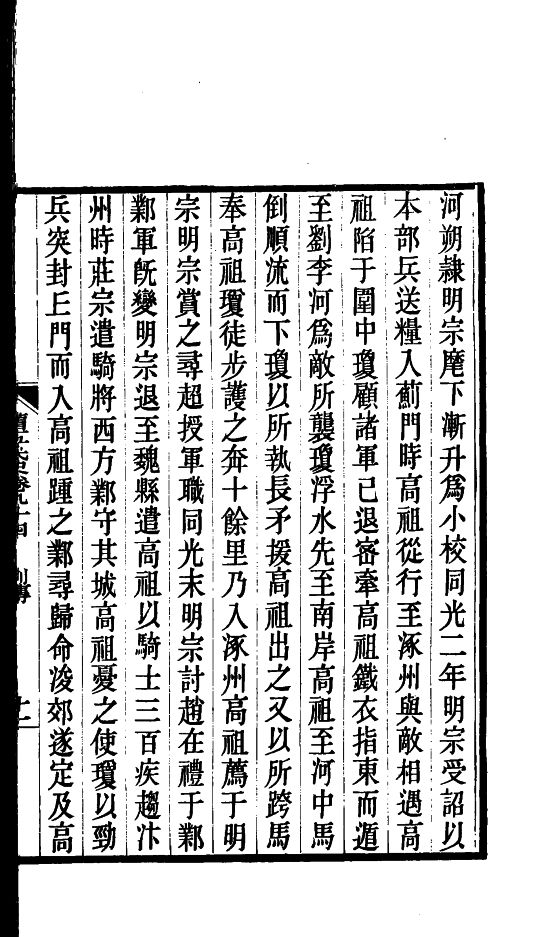 河朔隷明宗麾下漸升爲小校同光二年明宗受詔以
本部兵送糧入薊門時高祖從行至涿州與敵相遇高
祖陷于圍中瓊顧諸軍已退密牽高祖鐵衣指東而遁
至劉李河爲敵所襲瓊浮水先至南岸高祖至河中馬
倒順流而下瓊以所執長矛援高祖出之又以所跨馬
奉高祖瓊徒步護之奔十餘里乃入涿州高祖薦于明
宗明宗賞之尋超授軍職同光末明宗討趙在禮于鄴
鄴軍旣變明宗退至魏縣遣高祖以騎士三百疾趨汴
州時莊宗遣騎將西方鄴守其城高祖憂之使瓊以勁
兵突封丘門而入高祖踵之鄴尋歸命浚郊遂定及高